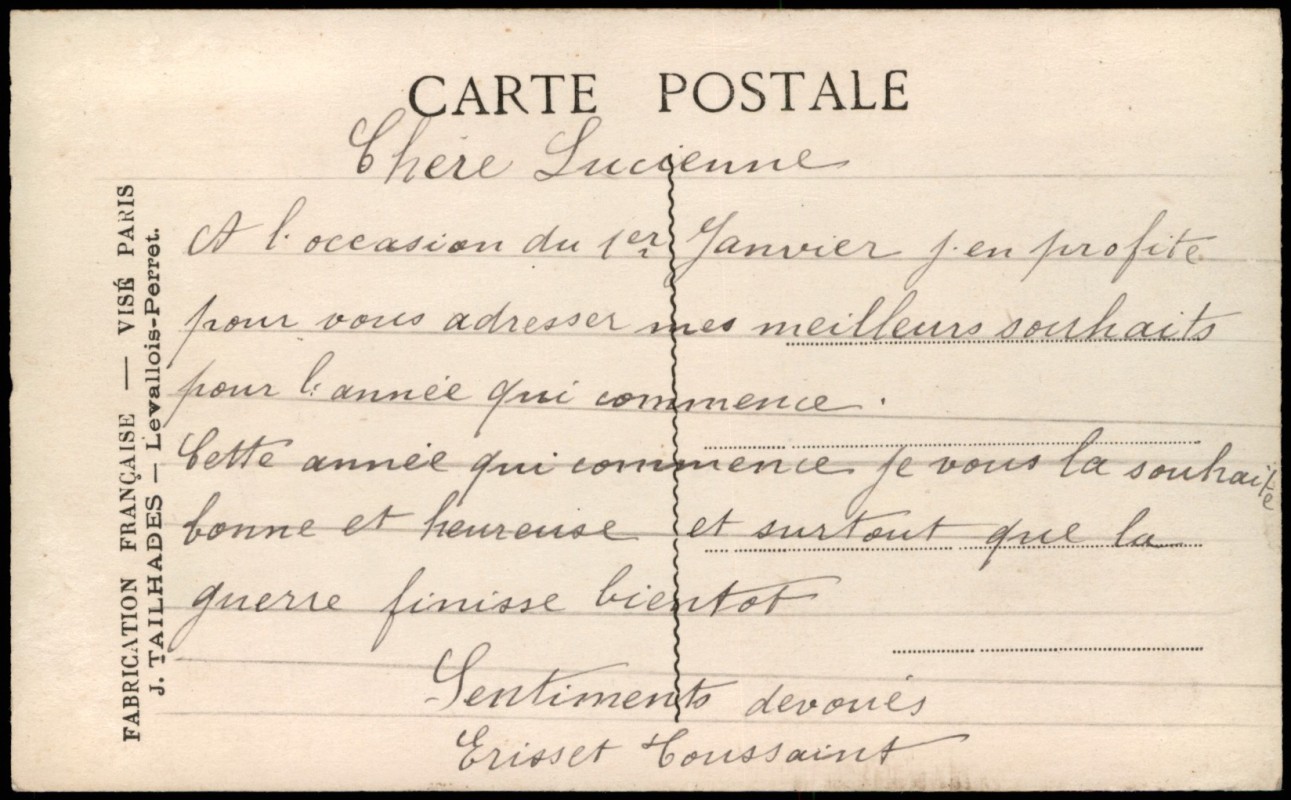 CARTE POSTALE
Chère Lucienne
A l'occasion du 1er Janvier j'en profite
pour vous adresser mes meilleurs souhaits
pour l'année qui commence.
Cette année qui commence je vous la souhaite
bonne et heureuse et surtout que la
guerre finisse bientot
Sentiments devoués
Erisset Toussaint
FABRICATION FRANÇAISE — VISÉ PARIS
J. TAILHADES — Levallois-Perret.